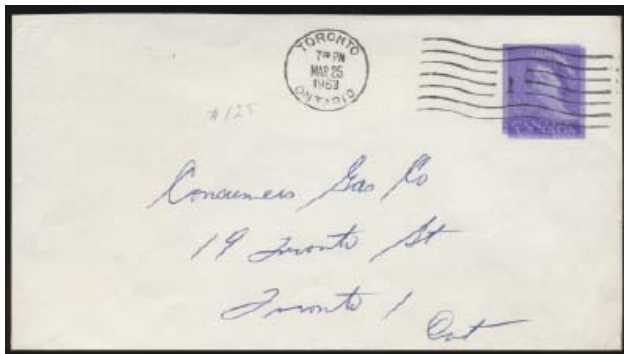 TORONTO
7 PM
MAR 25
1963
ONTARIO
#125
Consumers Gas Co
19 Toronto St
Toronto 1
Ont
CANADA